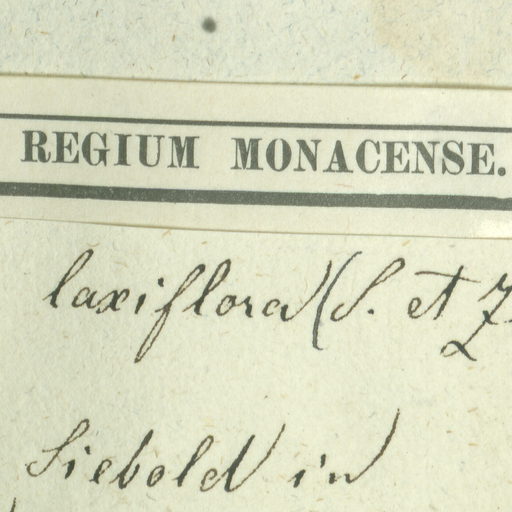 REGIUM MONACENSE.
laxiflora (S. et Z
Siebold in